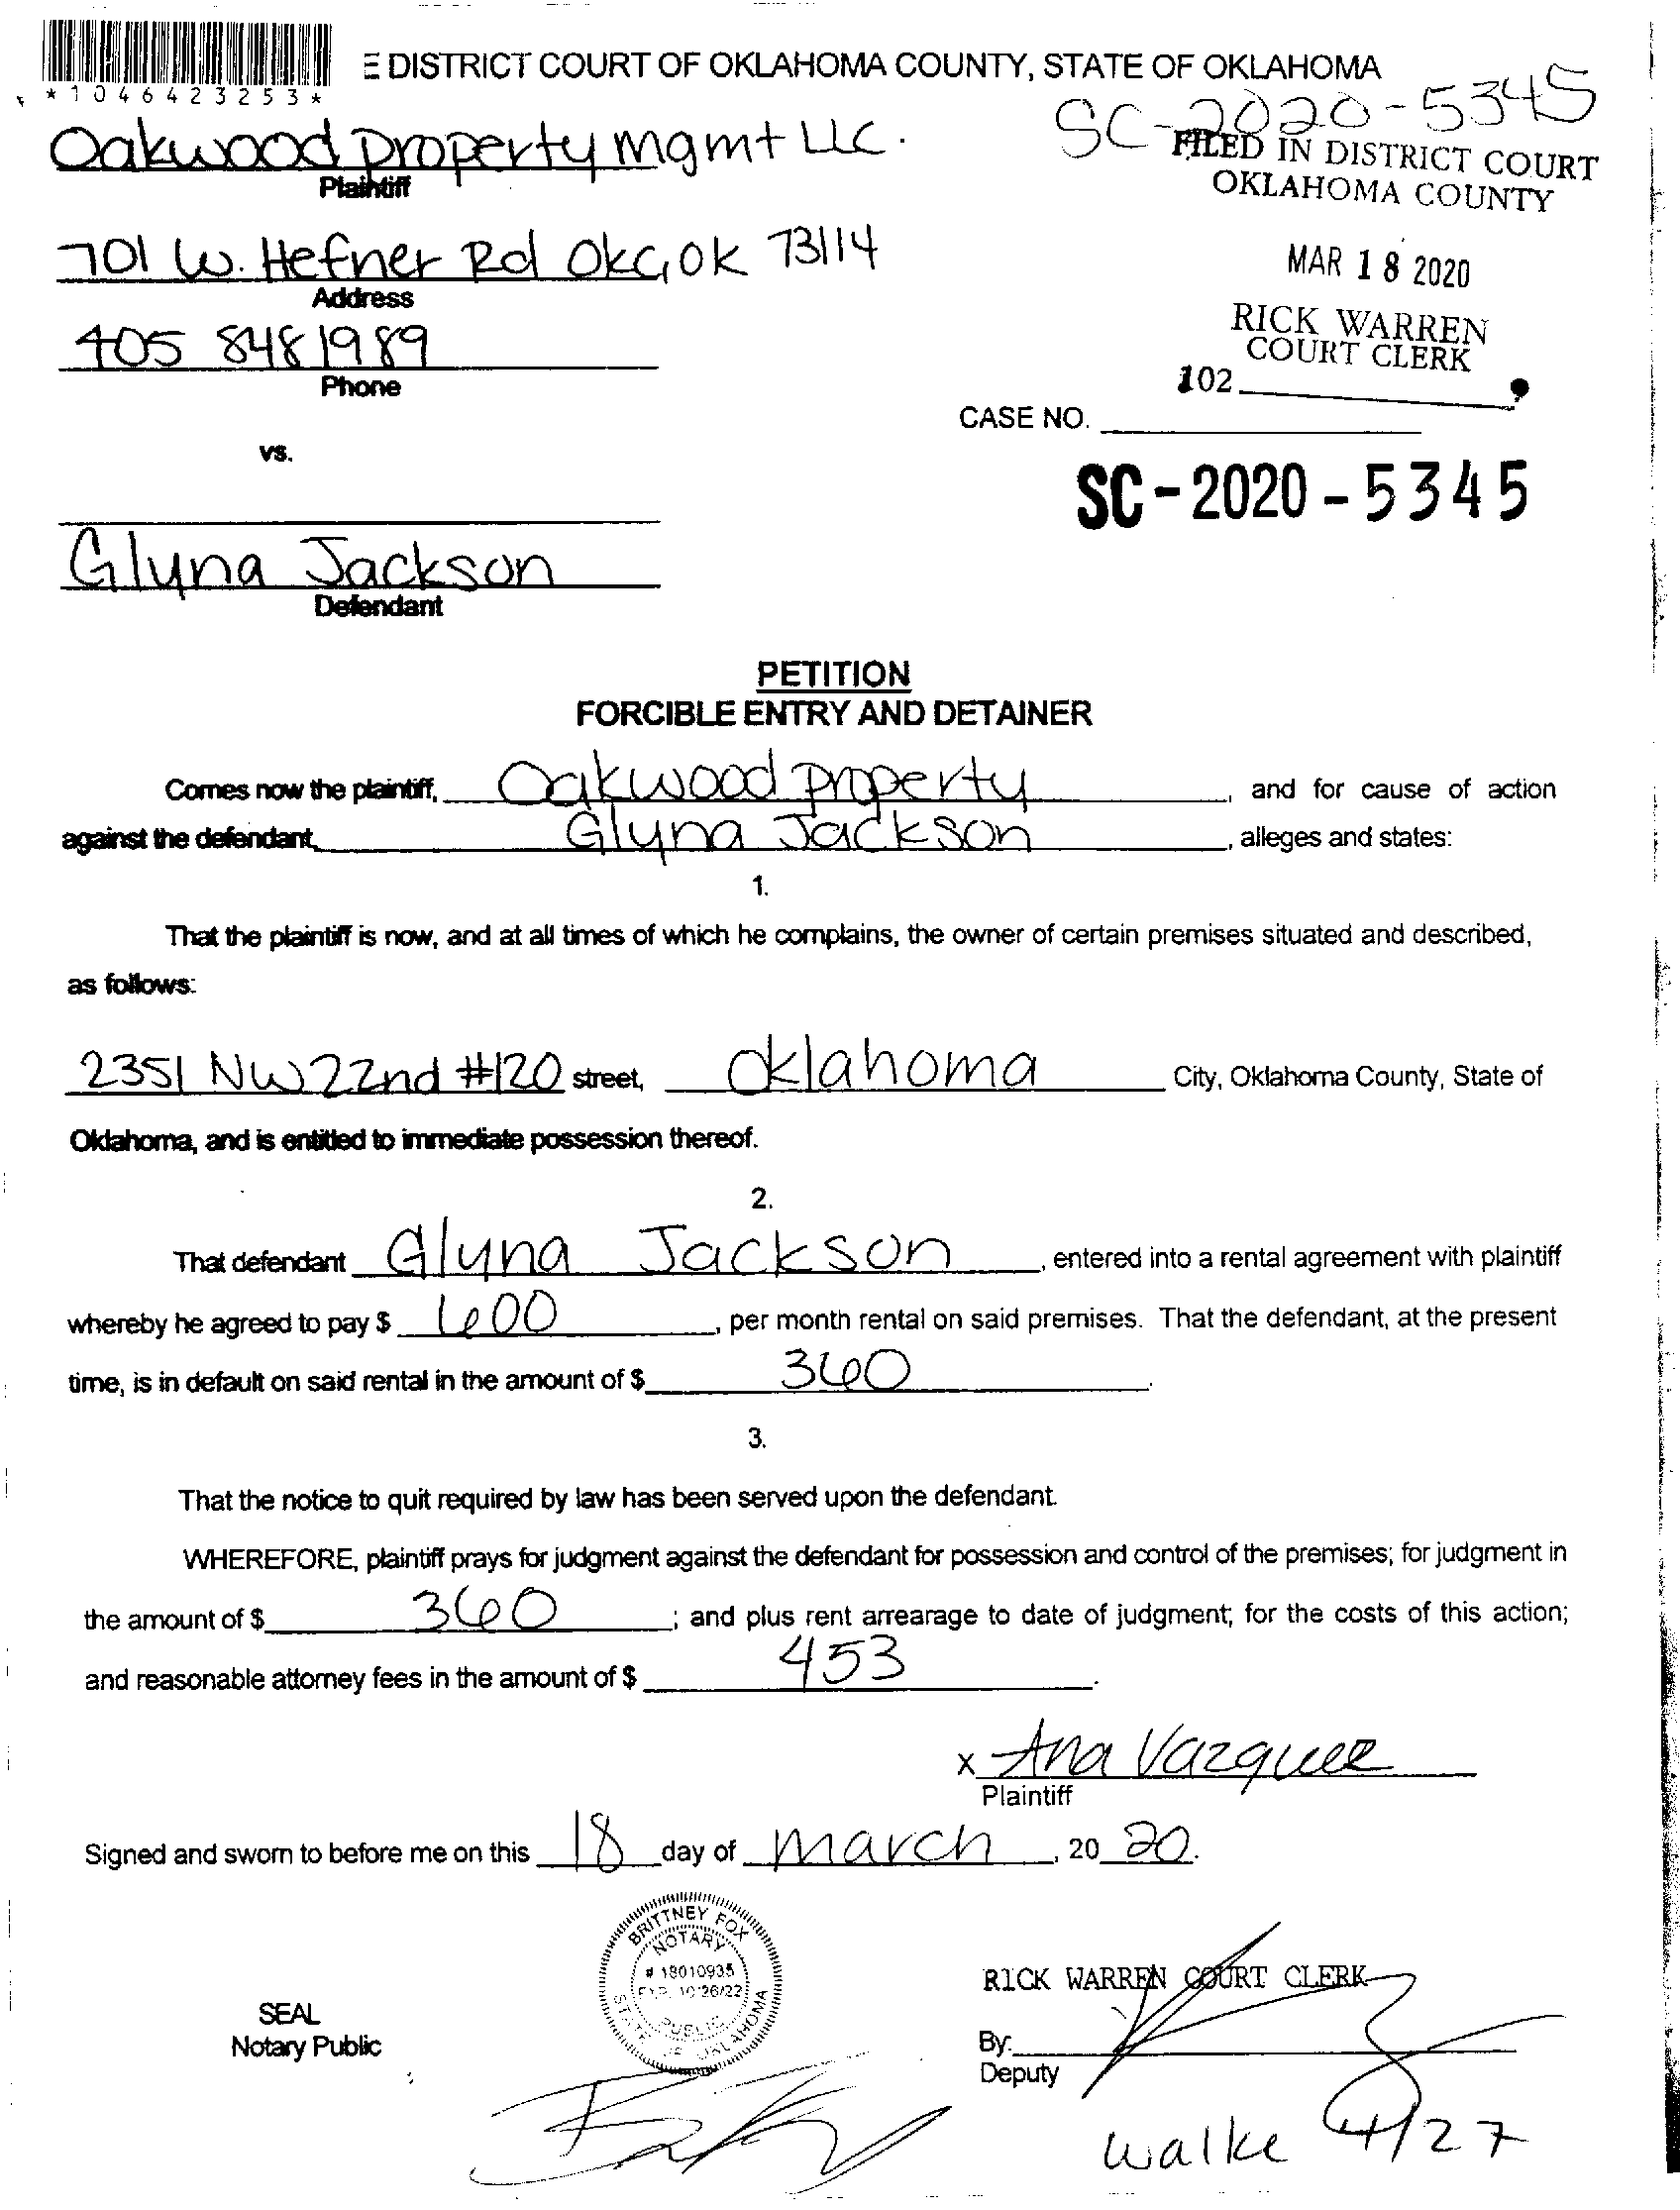 E DISTRICT COURT OF OKLAHOMA COUNTY, STATE OF OKLAHOMA
*1046423253*
SC-2020-5345
Oakwood Property Mgmt LLC.
Plaintiff
FILED IN DISTRICT COURT
OKLAHOMA COUNTY
701 W. Hefner Rd OKC, OK 73114
Address
MAR 18 2020
405 848 1989
Phone
RICK WARREN
COURT CLERK
102
CASE NO.
vs.
SC-2020-5345
Glyna Jackson
Defendant
PETITION
FORCIBLE ENTRY AND DETAINER
Comes now the plaintiff, Oakwood Property, and for cause of action
against the defendant, Glyna Jackson, alleges and states:
1.
That the plaintiff is now, and at all times of which he complains, the owner of certain premises situated and described,
as follows:
2351 NW 22nd #120 street, Oklahoma City, Oklahoma County, State of
Oklahoma, and is entitled to immediate possession thereof.
2.
That defendant Glyna Jackson, entered into a rental agreement with plaintiff
whereby he agreed to pay $ 600, per month rental on said premises. That the defendant, at the present
time, is in default on said rental in the amount of $ 360.
3.
That the notice to quit required by law has been served upon the defendant.
WHEREFORE, plaintiff prays for judgment against the defendant for possession and control of the premises; for judgment in
the amount of $ 360; and plus rent arrearage to date of judgment; for the costs of this action;
and reasonable attorney fees in the amount of $ 453.
x Ana Vazquez
Plaintiff
Signed and sworn to before me on this 18 day of March, 20 20.
BRITTNEY FOX
NOTARY
# 18010935
EXP. 10/26/22
PUBLIC
STATE OF OKLAHOMA
SEAL
Notary Public
RICK WARREN COURT CLERK
By:
Deputy
Walke 4/27